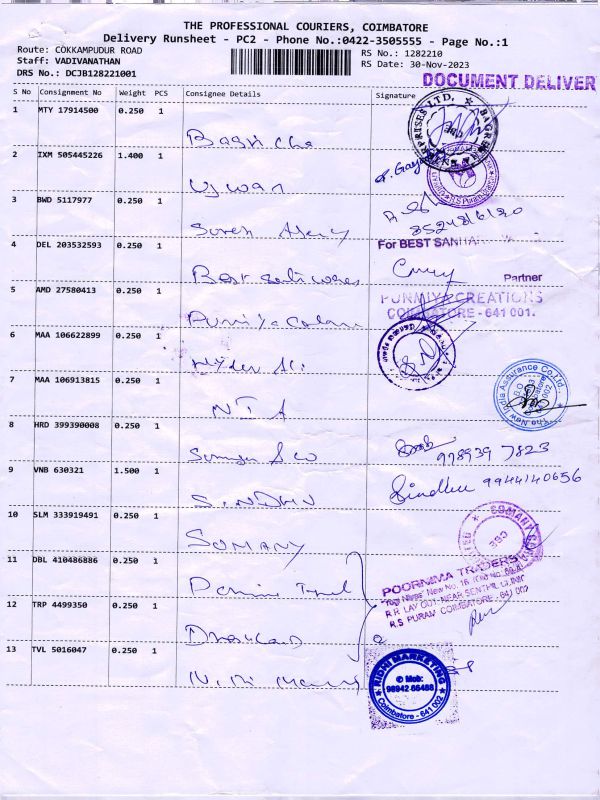 THE PROFESSIONAL COURIERS, COIMBATORE
Delivery Runsheet - PC2 - Phone No.:0422-3505555 - Page No.:1
Route: COKKAMPUDUR ROAD
RS No.: 1282210
Staff: VADIVANATHAN
RS Date: 30-Nov-2023
DRS No.: DCJB128221001
DOCUMENT DELIVER
S No Consignment No Weight PCS Consignee Details Signature
1 MTY 17914500 0.250 1
2 IXM 505445226 1.400 1
Ujwan
3 BWD 5117977 0.250 1
Suresh Agency
For BEST SANITA
4 DEL 203532593 0.250 1
Best Sanitwares
Partner
5 AMD 27580413 0.250 1
PUNMIYA CREATIONS
COIMBATORE - 641 001.
6 MAA 106622899 0.250 1
Hyder Ali
7 MAA 106913815 0.250 1
NIA
The New India Assurance Co. Ltd.
8 HRD 399390008 0.250 1
998939 7823
9 VNB 630321 1.500 1
SINDHU
Sindhu 9944140656
10 SLM 333919491 0.250 1
SOMANY
SOMANY
11 DBL 410486886 0.250 1
POORNIMA TRADERS
R.R LAY OUT-NEAR SENTHIL CLINIC
R.S PURAM COIMBATORE - 641 002
12 TRP 4499350 0.250 1
13 TVL 5016047 0.250 1
RIDHI MARKETING
Mob:
98942 66488
Coimbatore - 641 002